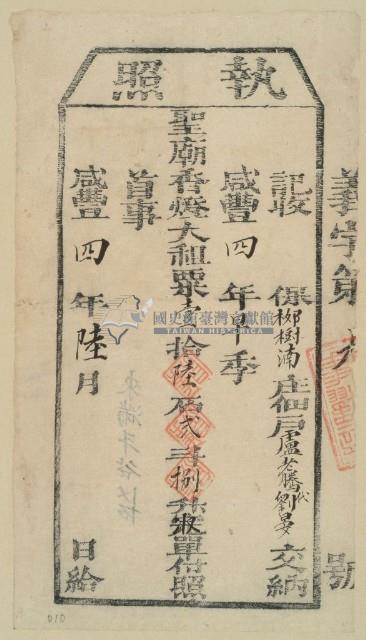 執照
義字第
號
記收
保柳樹湳庄佃戶盧老騰代劉晏交納
咸豐四年早季
聖廟香燈大租粟壹拾陸石貳斗捌升案單付照
首事
咸豐四年陸月
日給
國史館臺灣文獻館
TAIWAN HISTORICA
010